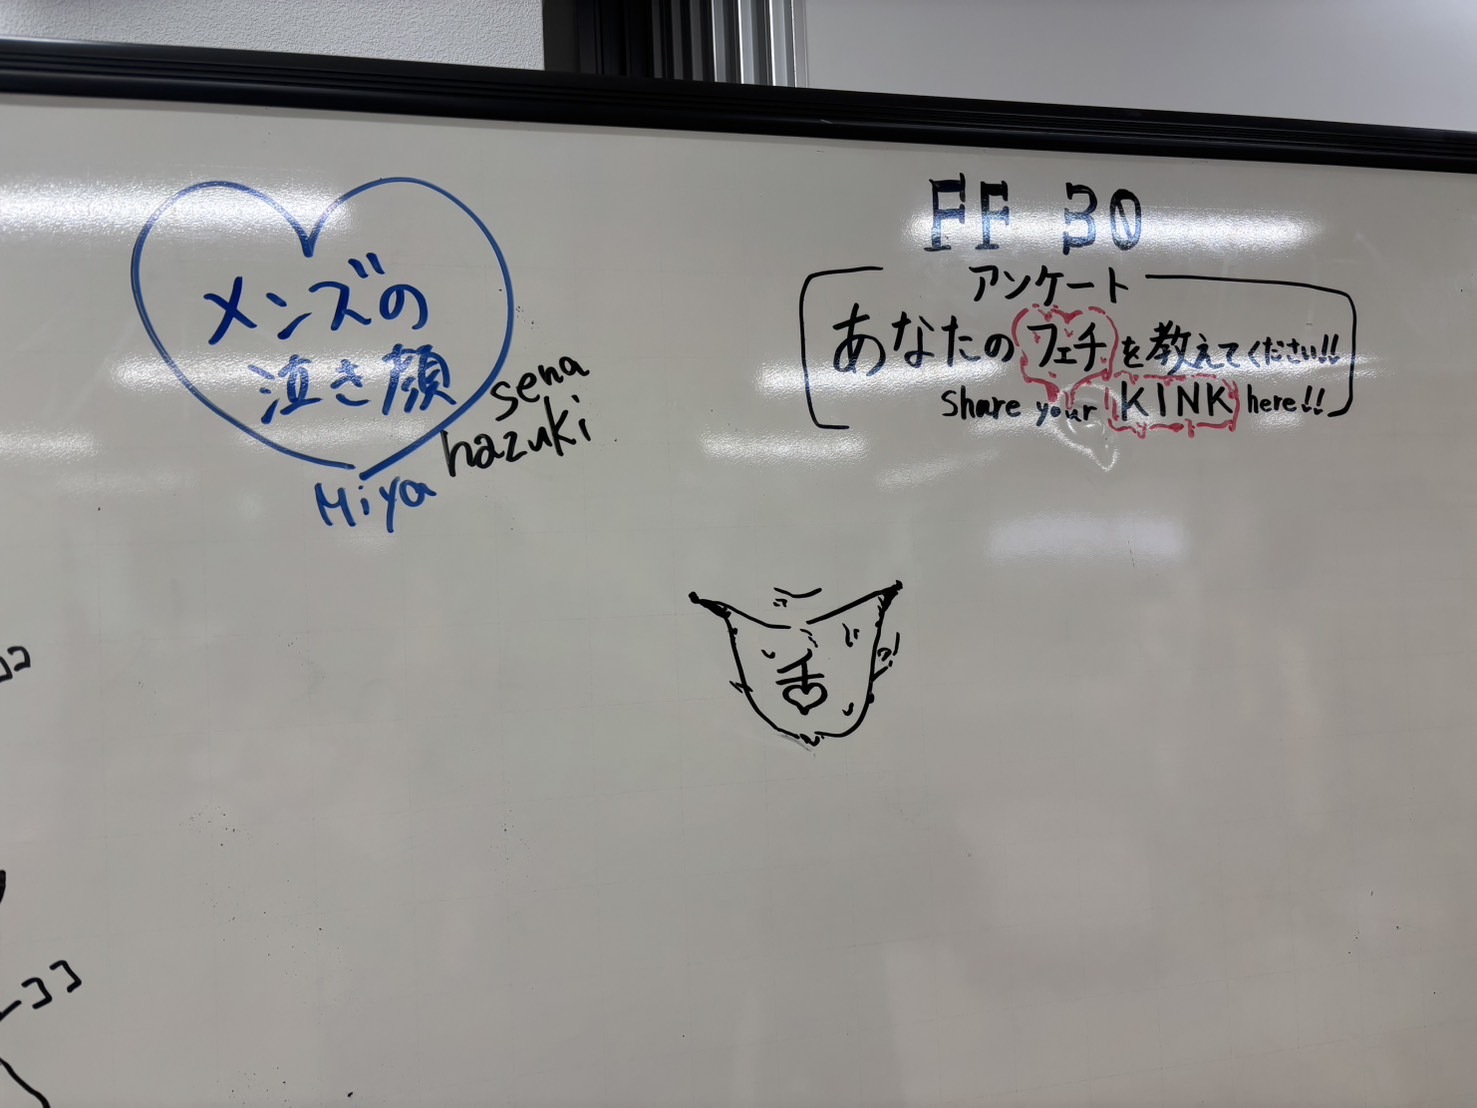 FF 30
アンケート
あなたのフェチを教えてください!!
Share your KINK here!!
メンズの
泣き顔
sena
hazuki
Miya
舌